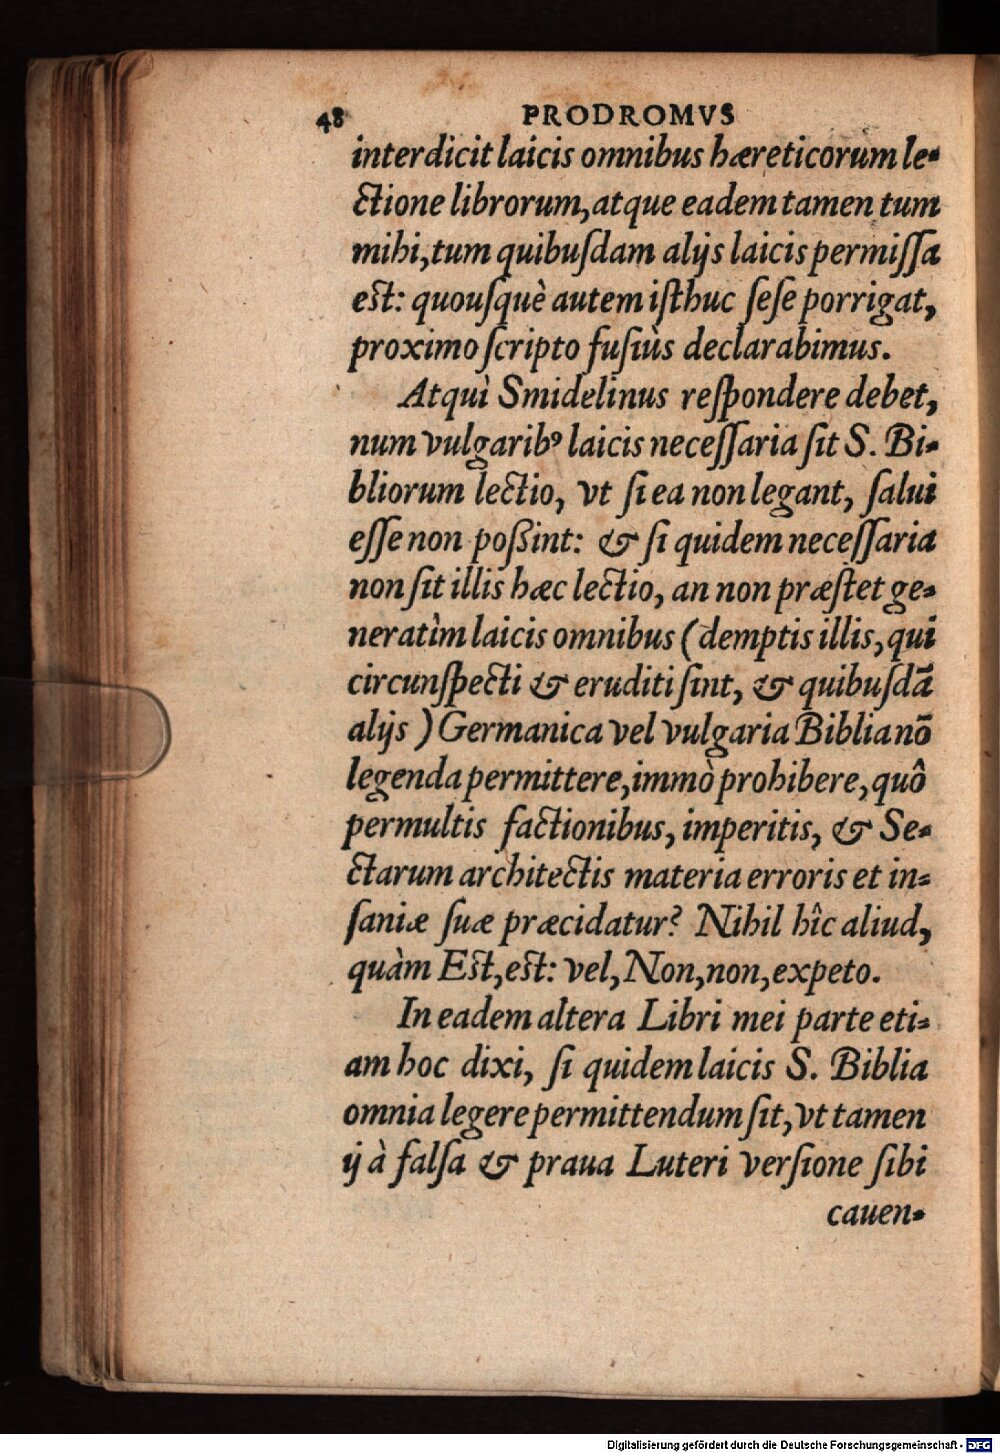 48 PRODROMVS
interdicit laicis omnibus hæreticorum le-
ctione librorum, atque eadem tamen tum
mihi, tum quibuſdam alijs laicis permiſſa
eſt: quouſquè autem iſthuc ſeſe porrigat,
proximo ſcripto fuſiùs declarabimus.
Atquì Smidelinus reſpondere debet,
num vulgaribꝰ laicis neceſſaria ſit S. Bi-
bliorum lectio, vt ſi ea non legant, ſalui
eſſe non poßint: & ſi quidem neceſſaria
non ſit illis hæc lectio, an non præſtet ge-
neratìm laicis omnibus (demptis illis, qui
circunſpecti & eruditi ſint, & quibuſdã
alijs) Germanica vel vulgaria Biblia nõ
legenda permittere, immò prohibere, quô
permultis factionibus, imperitis, & Se-
ctarum architectis materia erroris et in-
ſaniæ ſuæ præcidatur? Nihil hîc aliud,
quàm Eſt, eſt: vel, Non, non, expeto.
In eadem altera Libri mei parte eti-
am hoc dixi, ſi quidem laicis S. Biblia
omnia legere permittendum ſit, vt tamen
ij à falſa & praua Luteri verſione ſibi
cauen-
Digitalisierung gefördert durch die Deutsche Forschungsgemeinschaft - DFG